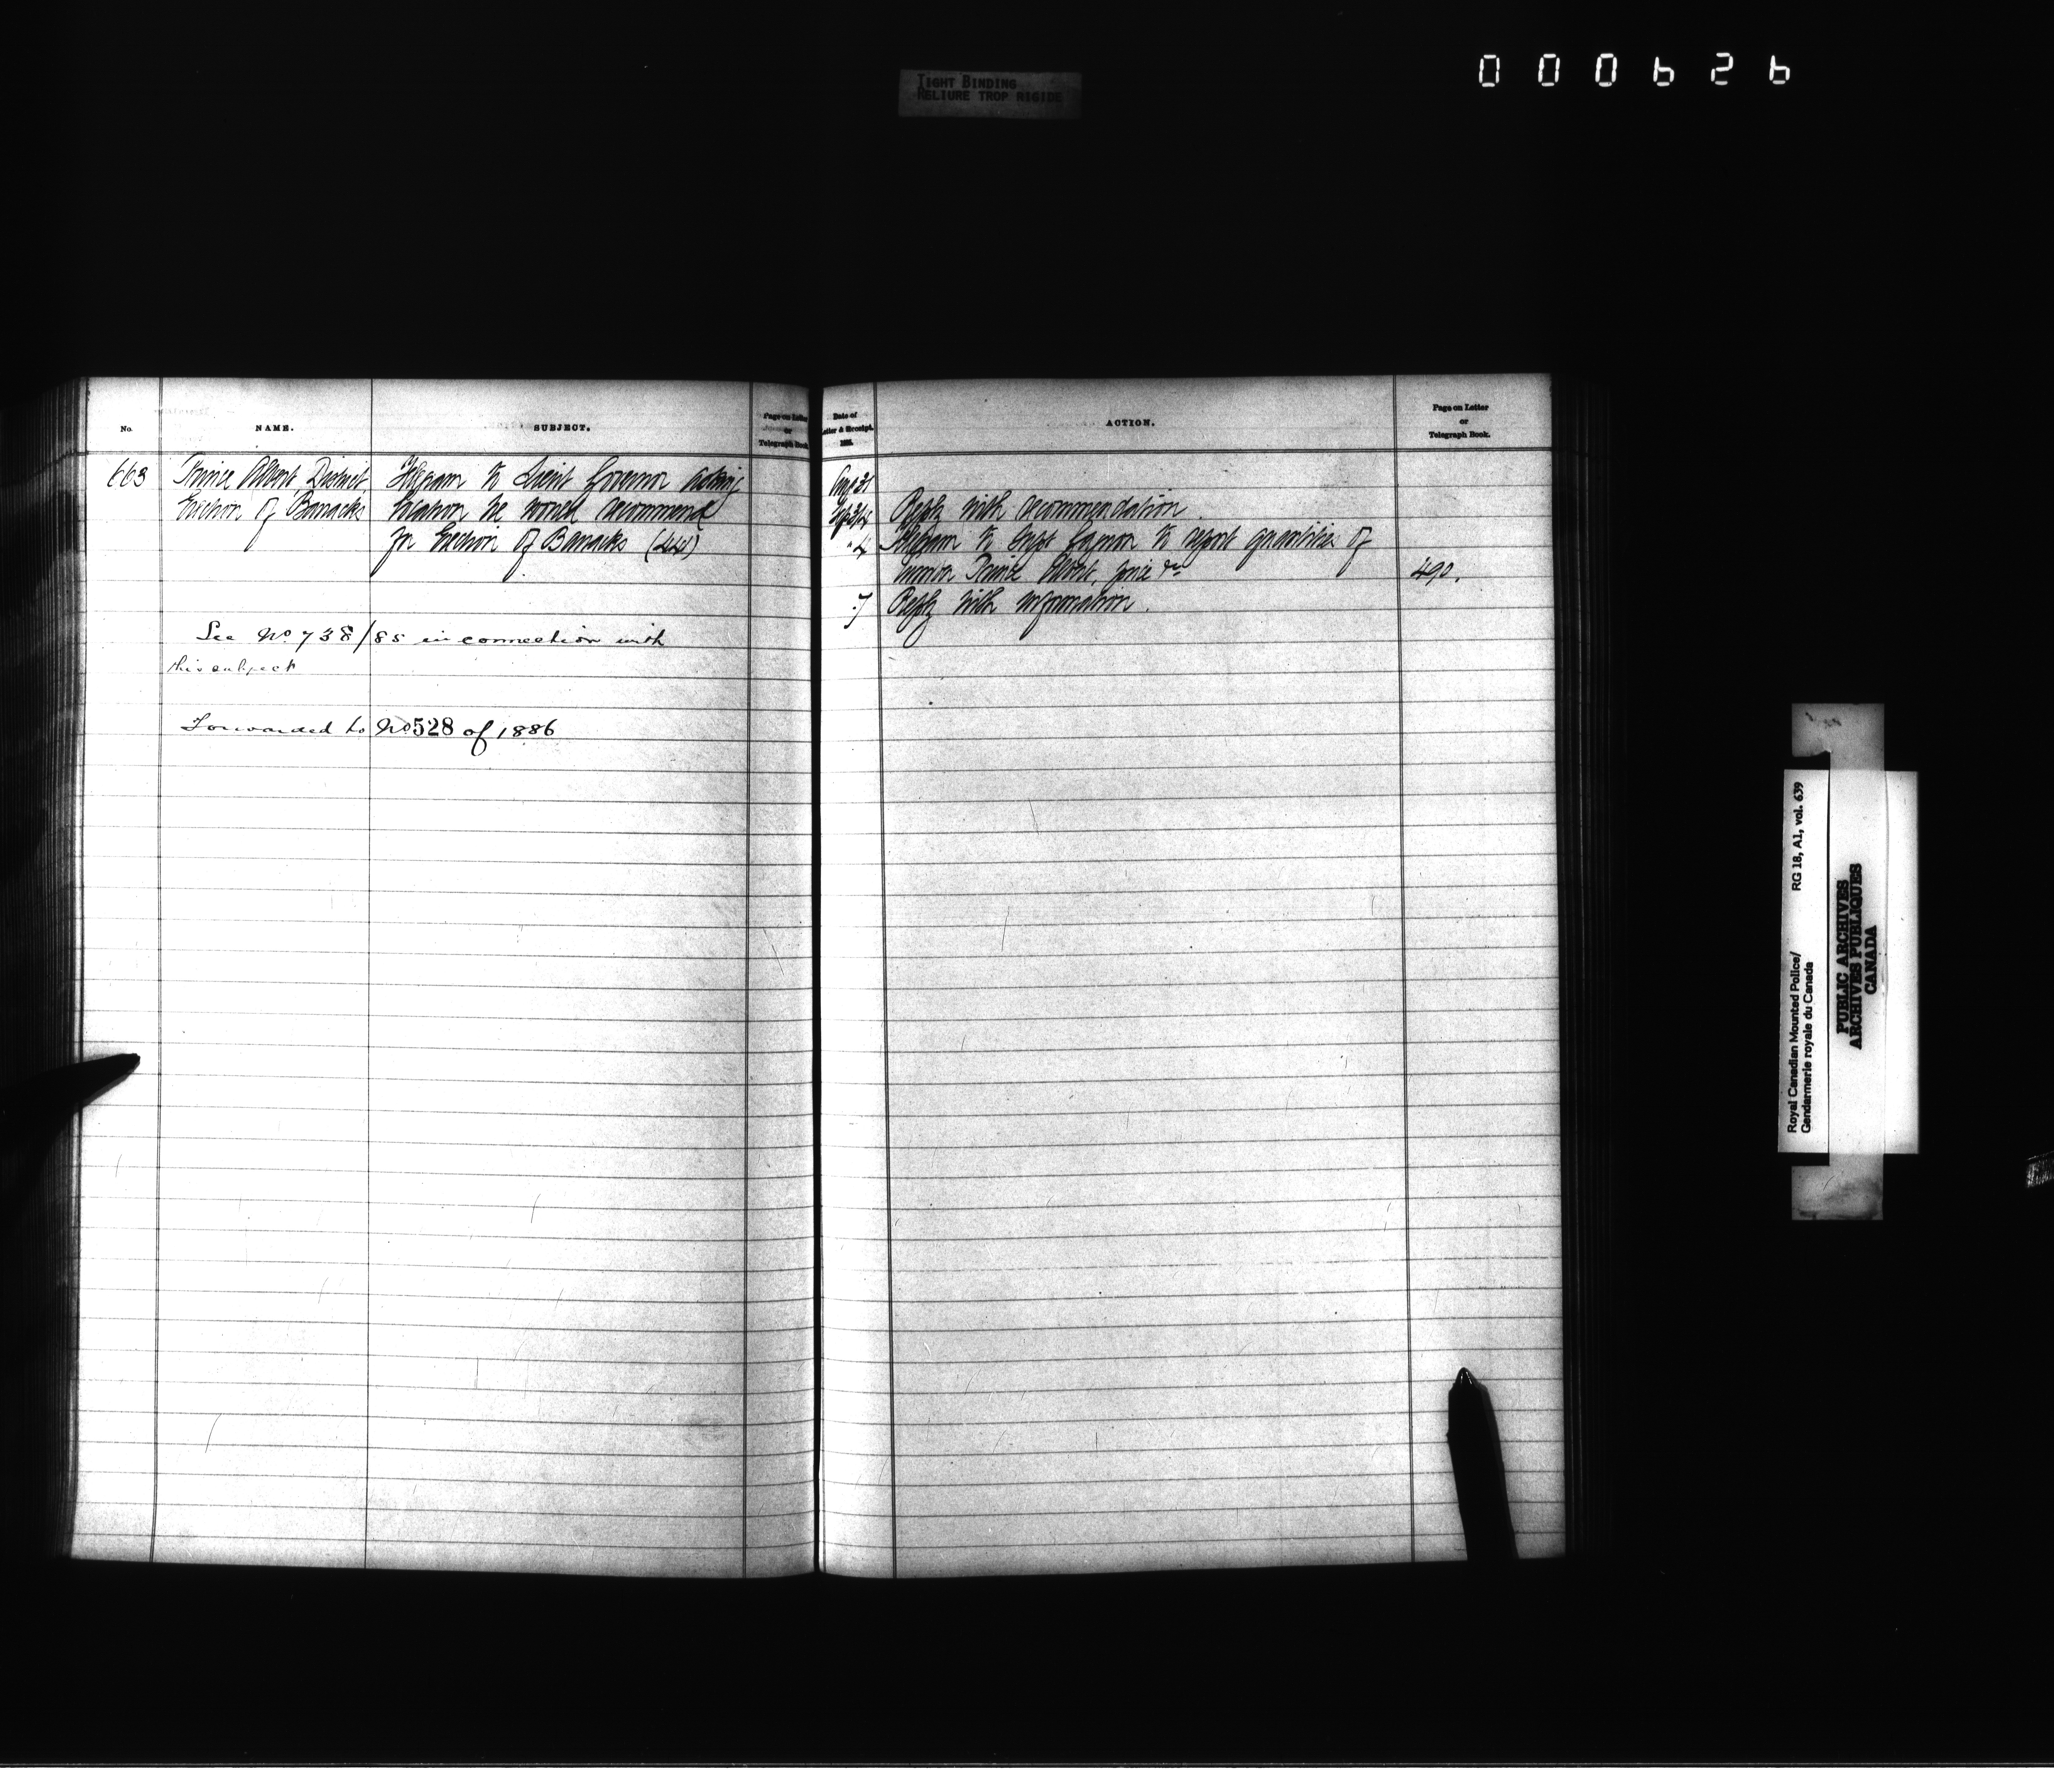 000626
TIGHT BINDING
RELIURE TROP RIGIDE
No.
NAME.
SUBJECT.
Page on Letter
or
Telegraph Book.
663
Prince Albert District
Erection of Barracks
Telegram to Lieut Governor asking
location he would recommend
for Erection of Barracks
See No. 738/85 in connection with
this subject
Forwarded to No 528 of 1886
Date of
Letter & Receipt.
ACTION.
Page on Letter
or
Telegraph Book.
Aug 31
Reply with recommendation
" 4 Telegram to Supt Gagnon to report quantities of
lumber Prince Albert, price &c 490.
" 7 Reply with information.
Royal Canadian Mounted Police/ RG 18, A1, vol. 639
Gendarmerie royale du Canada
PUBLIC ARCHIVES
ARCHIVES PUBLIQUES
CANADA